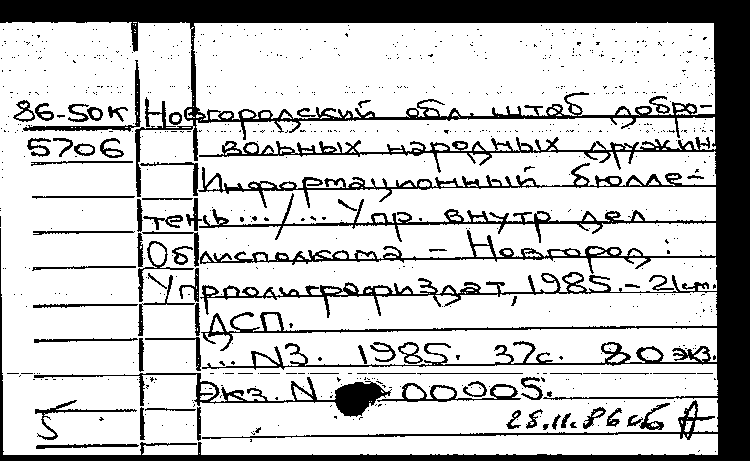 86-50к Новгородский обл. штаб добро-
5706 вольных народных дружин.
Информационный бюлле-
тень.../... Упр. внутр дел
Облисполкома. - Новгород:
Упрполиграфиздат, 1985. - 21см.
ДСП.
... N3. 1985. 37с. 80 экз.
Экз. N 00005.
5 28.11.86